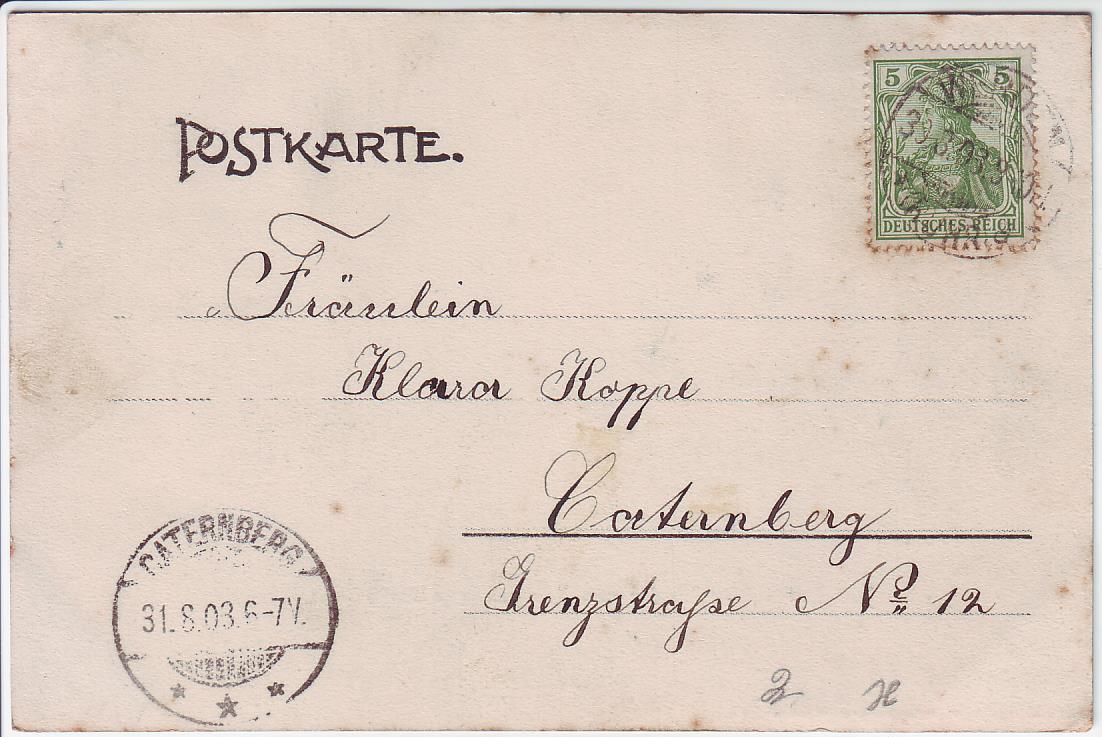 5 5
DEUTSCHES REICH
POSTKARTE.
Fräulein
Klara Koppe
Caternberg
Grenzstraße No 12
CATERNBERG
31.8.03.6-7V.
2